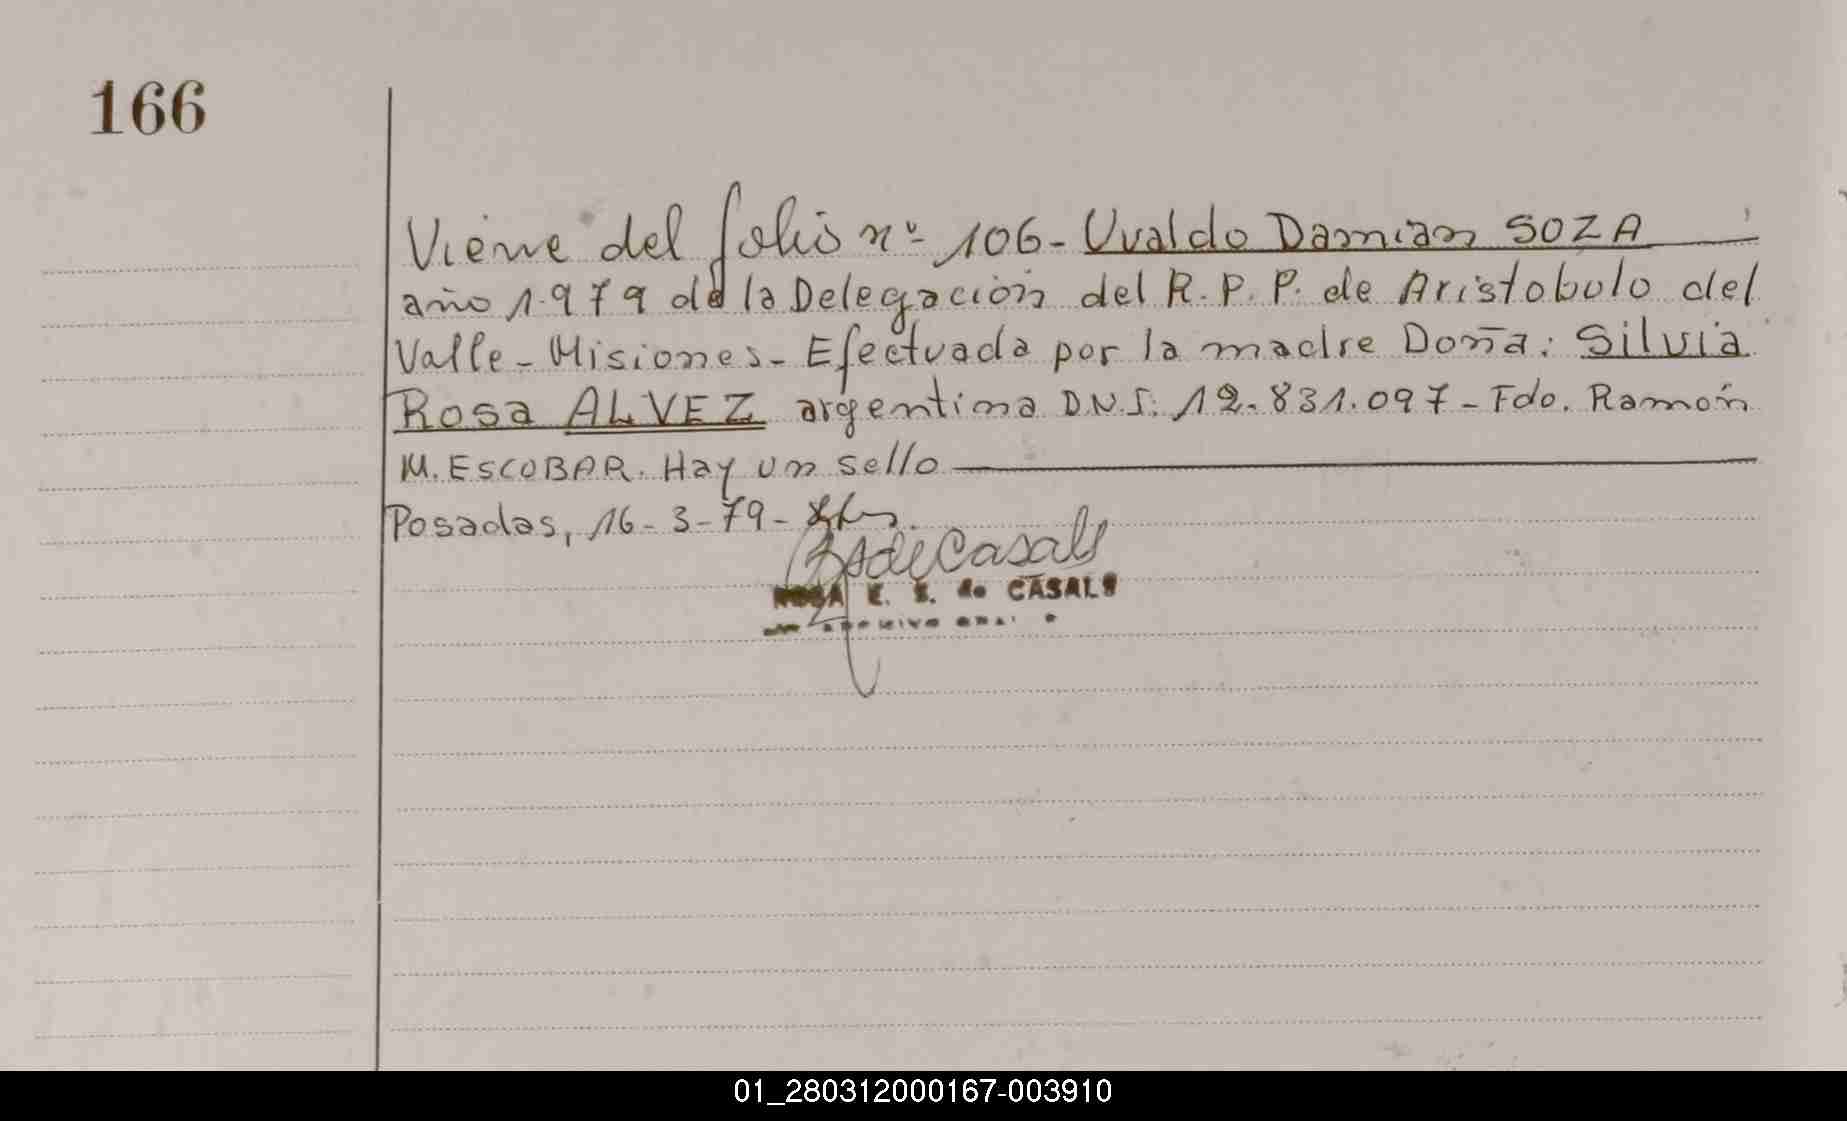 166
Viene del folio nº 106- Uvaldo Damian SOZA
año 1.979 de la Delegación del R.P.P. de Aristobulo del
Valle- Misiones- Efectuada por la madre Doña: Silvia
Rosa ALVEZ argentina D.N.I: 12.831.097- Fdo. Ramón
M. ESCOBAR. Hay un sello
Posadas, 16-3-79-
de Casals
ROSA E. S. de CASALS
01_280312000167-003910